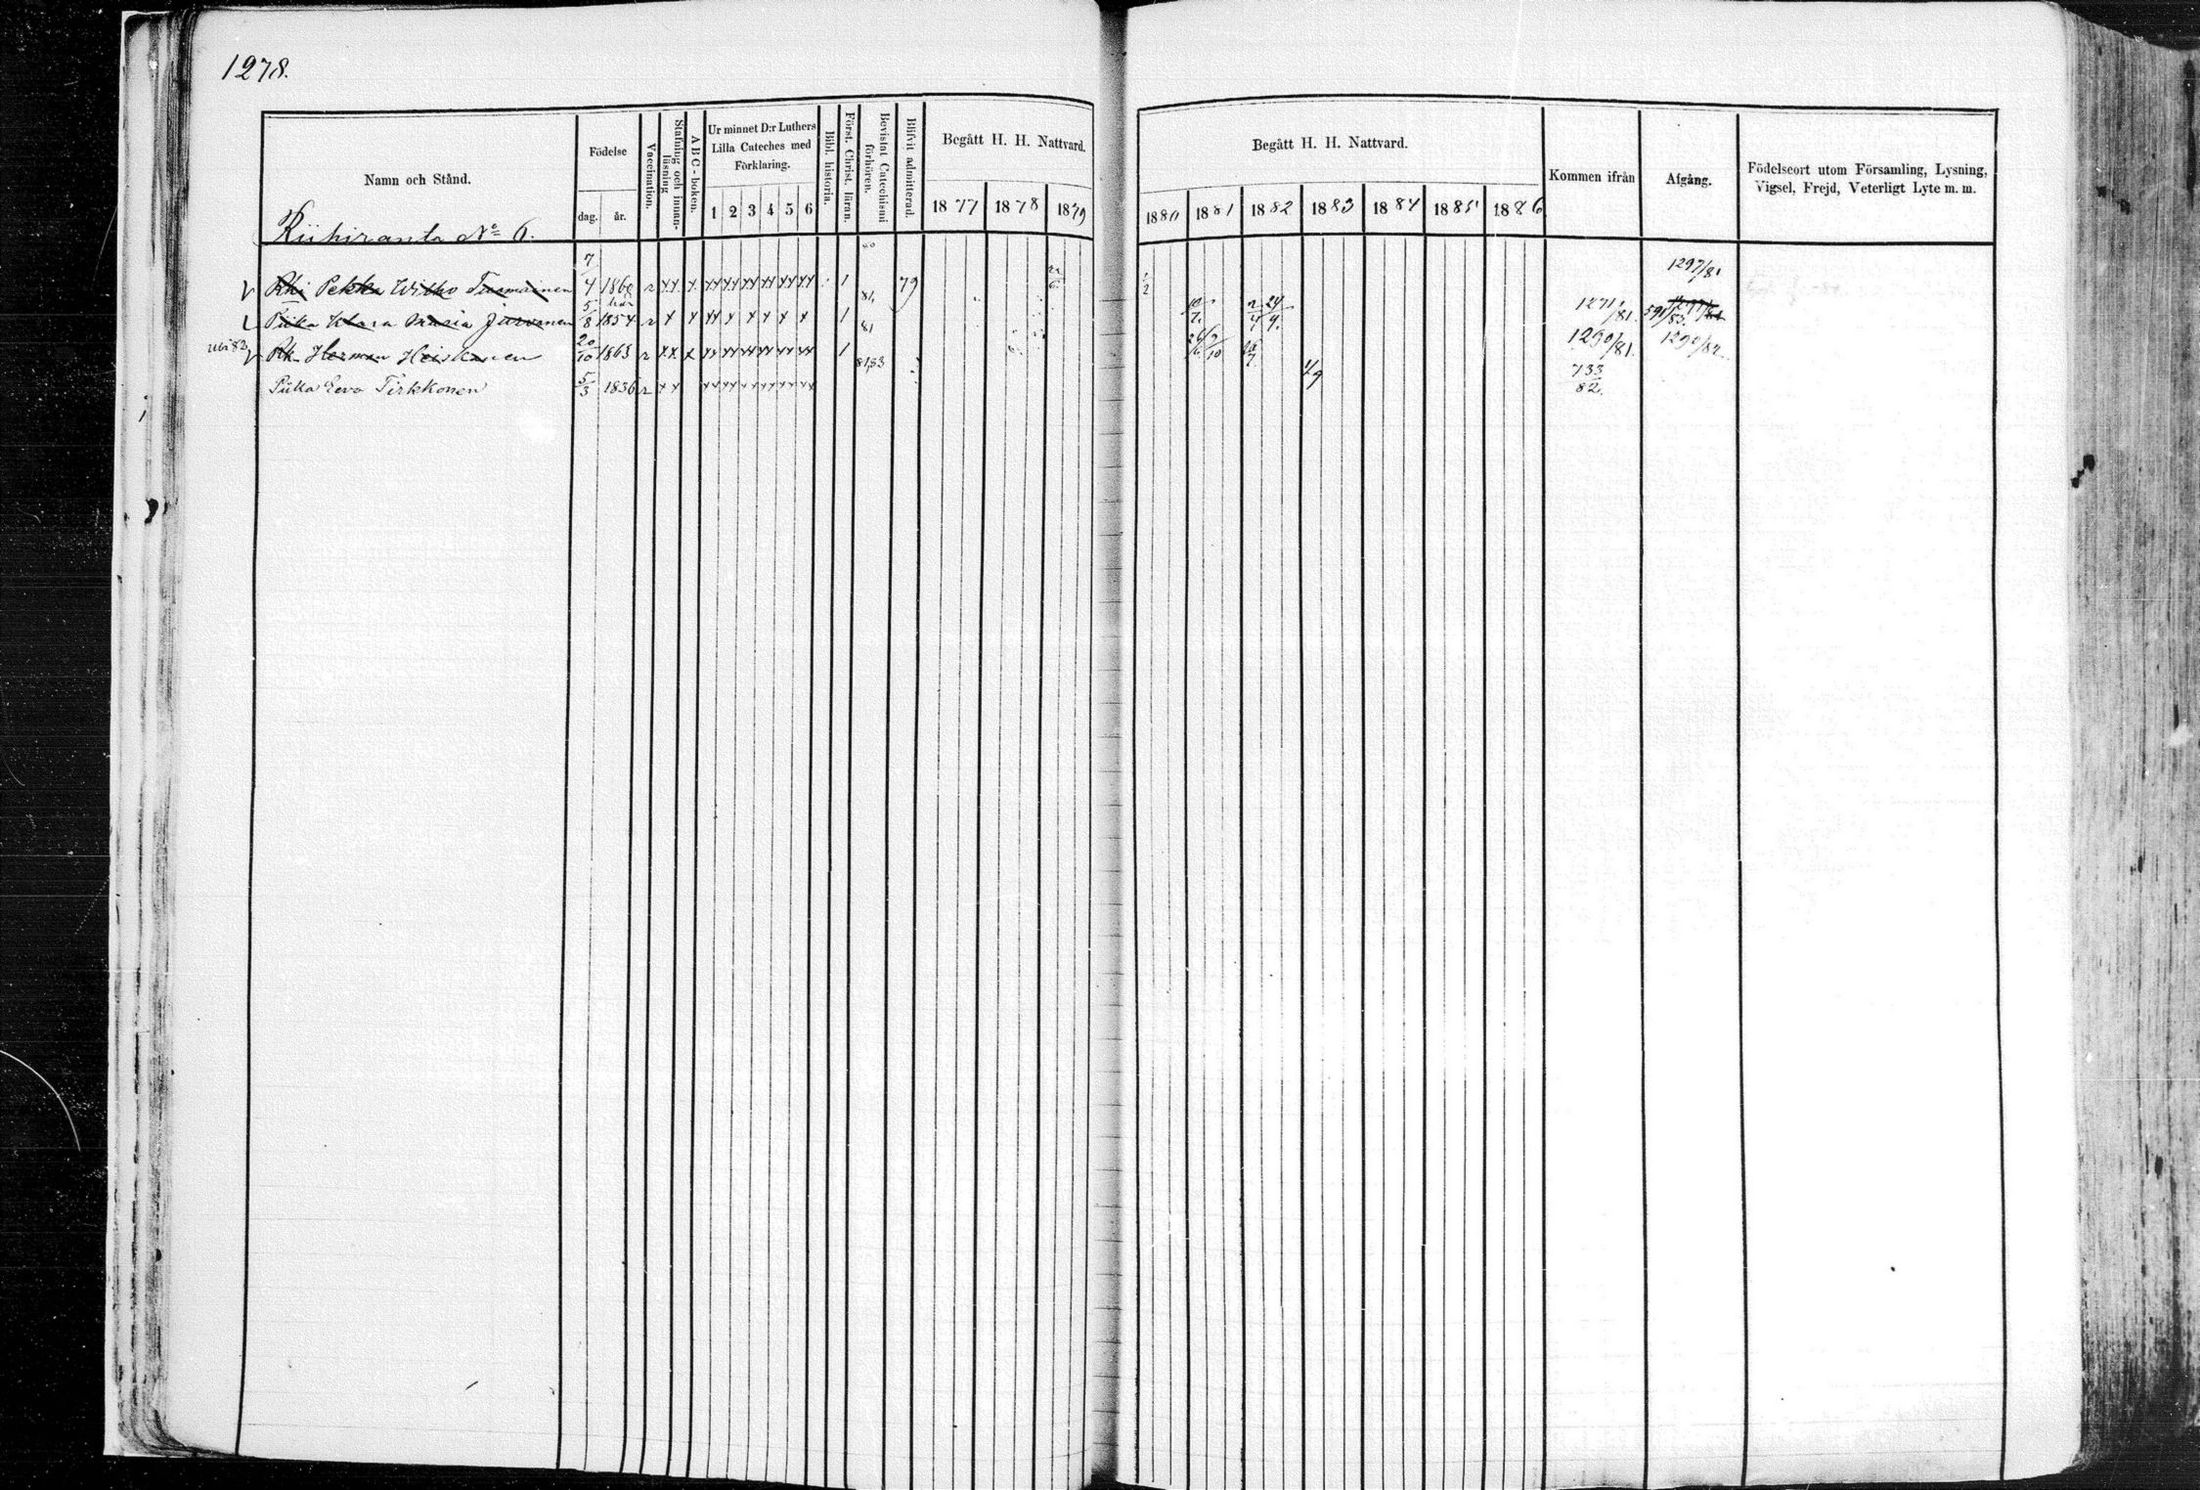 1278.
Namn och Stånd.
Födelse
dag. år.
Vaccination.
Stafning och innan-läsning
A B C - boken.
Ur minnet D:r Luthers Lilla Cateches med Förklaring.
1 2 3 4 5 6
Bibl. historia.
Först. Christ. läran.
Bevistat Catechismi förhören.
Blifvit admitterad.
Begått H. H. Nattvard.
1877 1878 1879
Begått H. H. Nattvard.
1880 1881 1882 1883 1884 1885 1886
Kommen ifrån
Afgång.
Födelseort utom Församling, Lysning, Vigsel, Frejd, Veterligt Lyte m. m.
Riihiranta No 6.
Rki Pekka Wilho 7/4 1860 r 1 79 1/2 1297/81
Piika Klara Maria Järvinen 5/8 1854 r 1 81 1271/81. 591/83.
Rk Herman Heiskanen 20/10 1863 r 1 1290/81. 1290/82.
Piika Eeva Tirkkonen 5/3 1836 r 81,83 1/9 733/82.